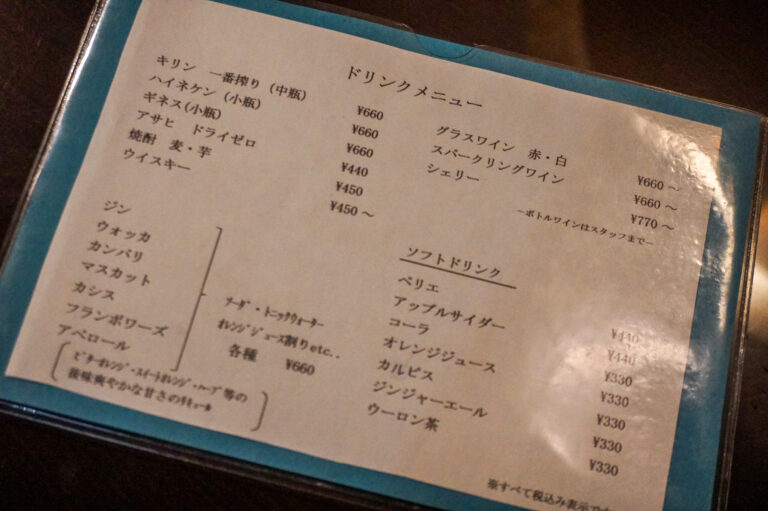 ドリンクメニュー
キリン 一番搾り（中瓶） ¥660
ハイネケン（小瓶） ¥660
ギネス(小瓶) ¥660
アサヒ ドライゼロ ¥440
焼酎 麦・芋 ¥450
ウイスキー ¥450～
グラスワイン 赤・白 ¥660～
スパークリングワイン ¥660～
シェリー ¥770～
―ボトルワインはスタッフまで―
ジン
ウォッカ
カンパリ
マスカット
カシス
フランボワーズ
アペロール
ｿｰﾀﾞ・ﾄﾆｯｸｳｫｰﾀｰ
ｵﾚﾝｼﾞｼﾞｭｰｽ割りetc..
各種 ¥660
ﾋﾞﾀｰｵﾚﾝｼﾞ・ｽｲｰﾄｵﾚﾝｼﾞ・ﾊｰﾌﾞ等の
後味爽やかな甘さのﾘｷｭｰﾙ
ソフトドリンク
ペリエ ¥440
アップルサイダー ¥440
コーラ ¥330
オレンジジュース ¥330
カルピス ¥330
ジンジャーエール ¥330
ウーロン茶 ¥330
※すべて税込み表示です